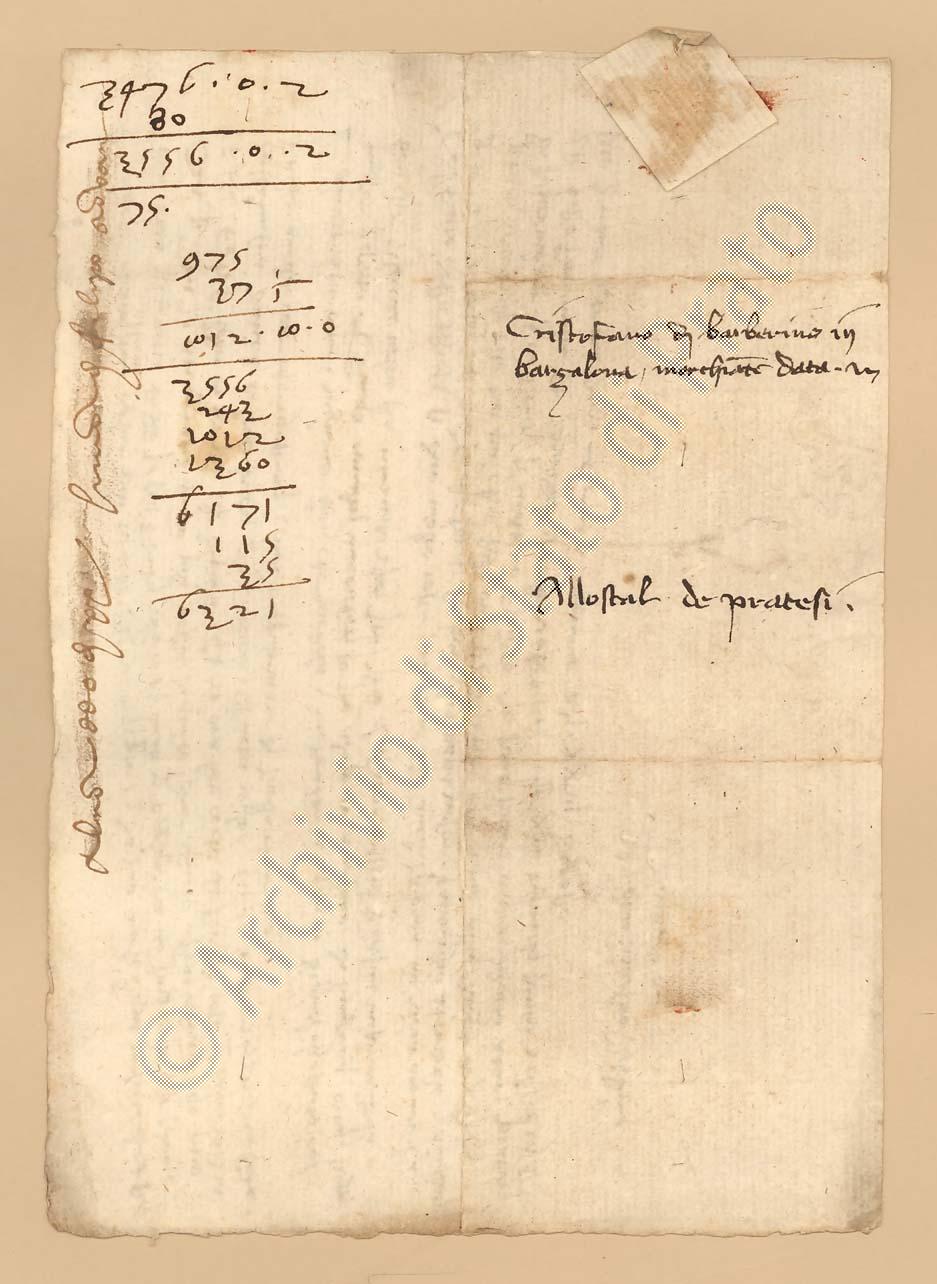 3476 · 0 · 2
80
3556 · 0 · 2
75 ·
975
37 1
1012 · 10 · 0
3556
243
1012
1360
6171
115
35
6321
Cristofano di barberino in
barzalona, merchāte data · in
Allostal de pratesi ·
© Archivio di Stato di Prato